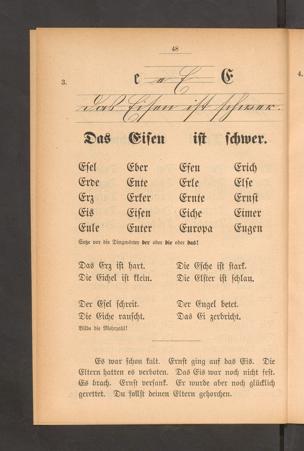 48
3.
e e E E
das Eisen ist schwer.
Das Eisen ist schwer.
Esel Eber Esen Erich
Erde Ente Erle Else
Erz Erker Ernte Ernst
Eis Eisen Eiche Eimer
Eule Euter Europa Eugen
Setze vor die Dingwörter der oder die oder das!
Das Erz ist hart. Die Esche ist stark.
Die Eichel ist klein. Die Elster ist schlau.
Der Esel schreit. Der Engel betet.
Die Eiche rauscht. Das Ei zerbricht.
Bilde die Mehrzahl!
Es war schon kalt. Ernst ging auf das Eis. Die
Eltern hatten es verboten. Das Eis war noch nicht fest.
Es brach. Ernst versank. Er wurde aber noch glücklich
gerettet. Du sollst deinen Eltern gehorchen.
4.